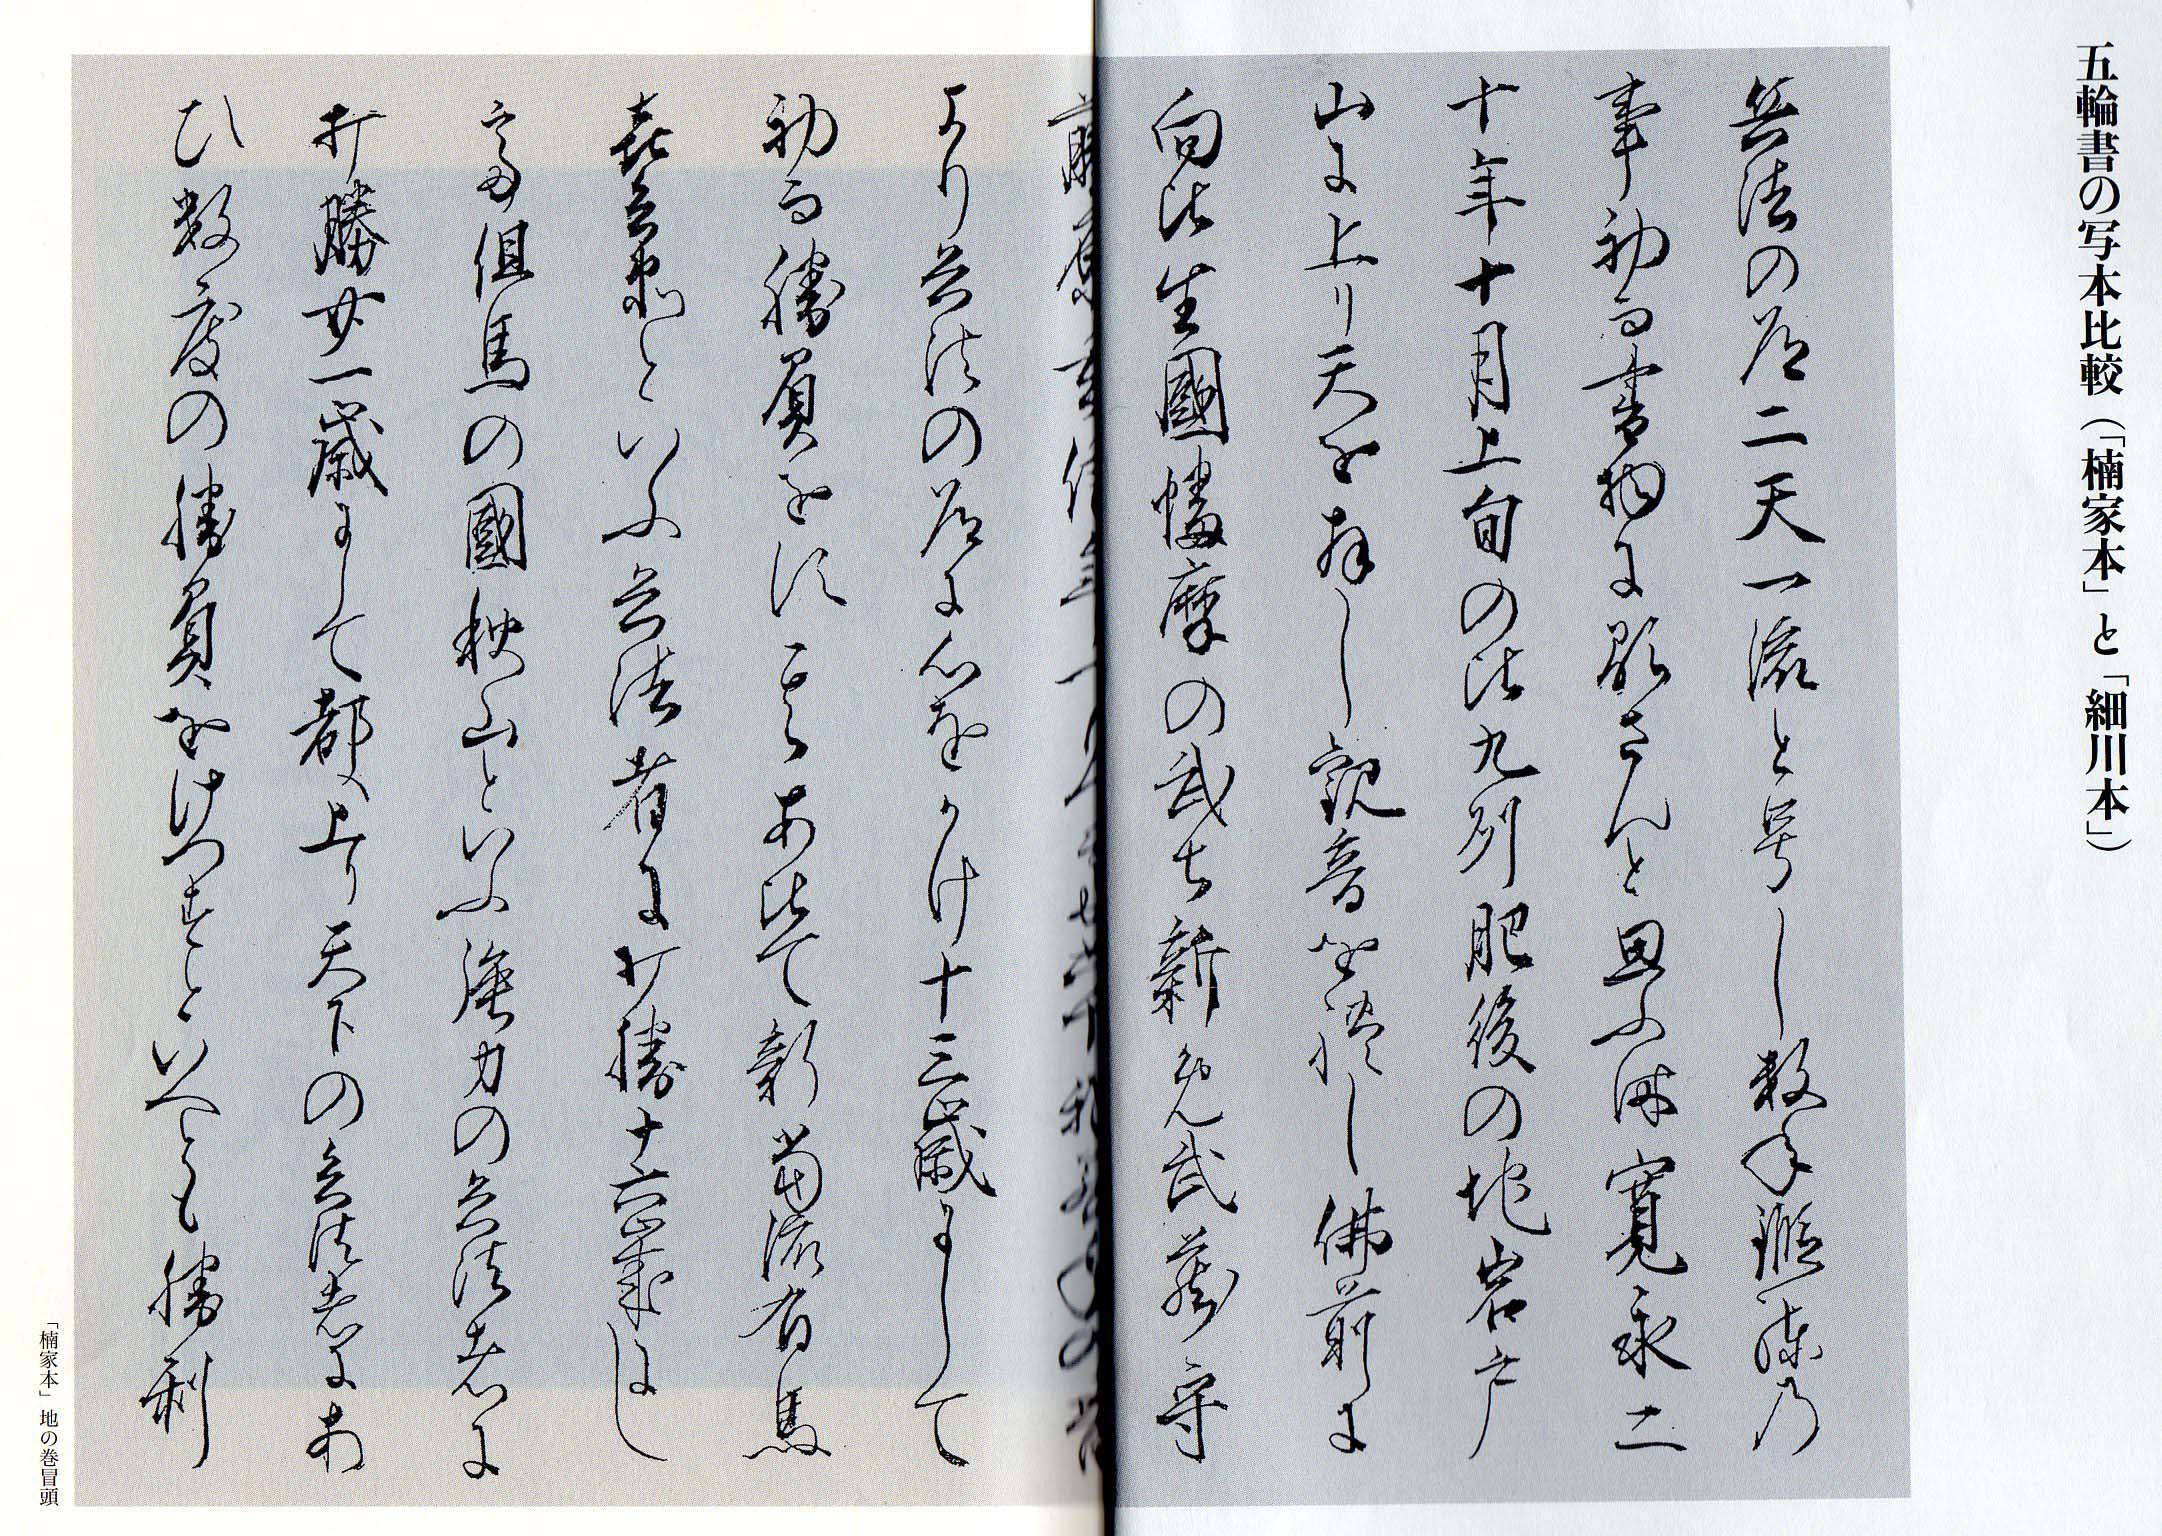 五輪書の写本比較（「楠家本」と「細川本」）
兵法の道二天一流と号し数年鍛練乃
事初而書物に顕さんと思ふ時寛永二
十年十月上旬の比九州肥後の地岩戸
山に上り天を拝し観音を礼し佛前に
向比生國幡摩の武士新免武蔵守
藤原玄信年
より兵法の道に心をかけ十三歳にして
初而勝負を須 其あひて新當流有馬
喜兵衛といふ兵法者に打勝十六歳にし
て但馬の國秋山といふ強力の兵法者に
打勝廿一歳にして都へ上り天下の兵法者にあ
ひ数度の勝負をけつすといへとも勝利
「楠家本」地の巻冒頭